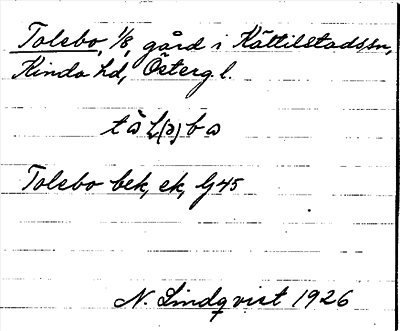 Tolebo, 1/8, gård i Kättilstads sn,
Kinda hd, Östergl.
Tolebo bek, ek, G 45
N. Lindqvist 1926